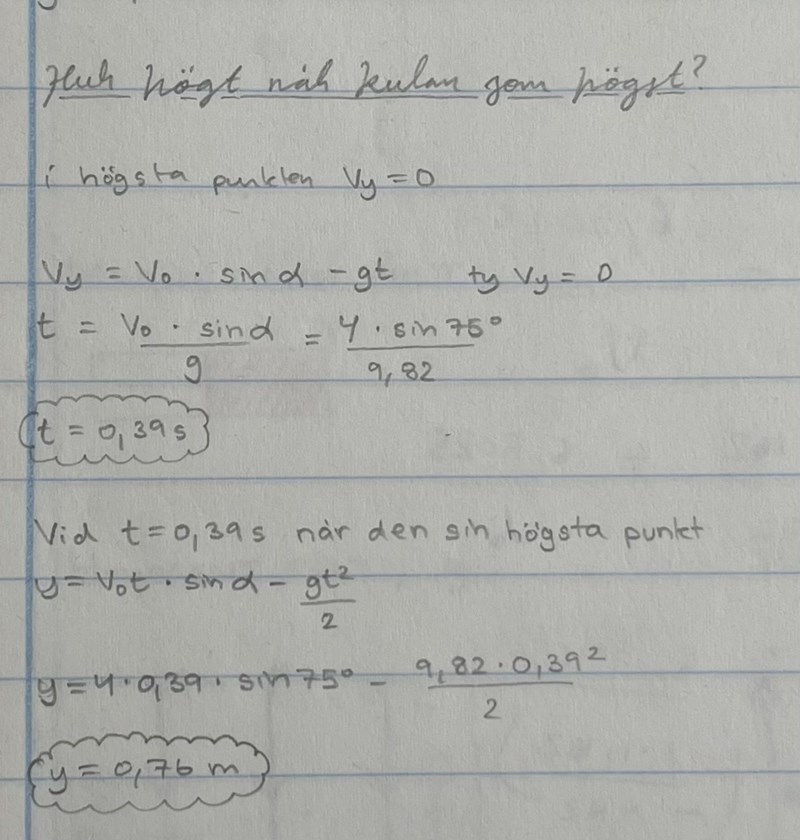 Hur högt når kulan som högst?
i högsta punkten Vy = 0
Vy = V₀ · sin α - gt ty Vy = 0
t = V₀ · sin α / g = 4 · sin 75° / 9,82
t = 0,39 s
Vid t = 0,39 s når den sin högsta punkt
y = V₀t · sin α - gt² / 2
y = 4 · 0,39 · sin 75° - 9,82 · 0,39² / 2
y = 0,76 m